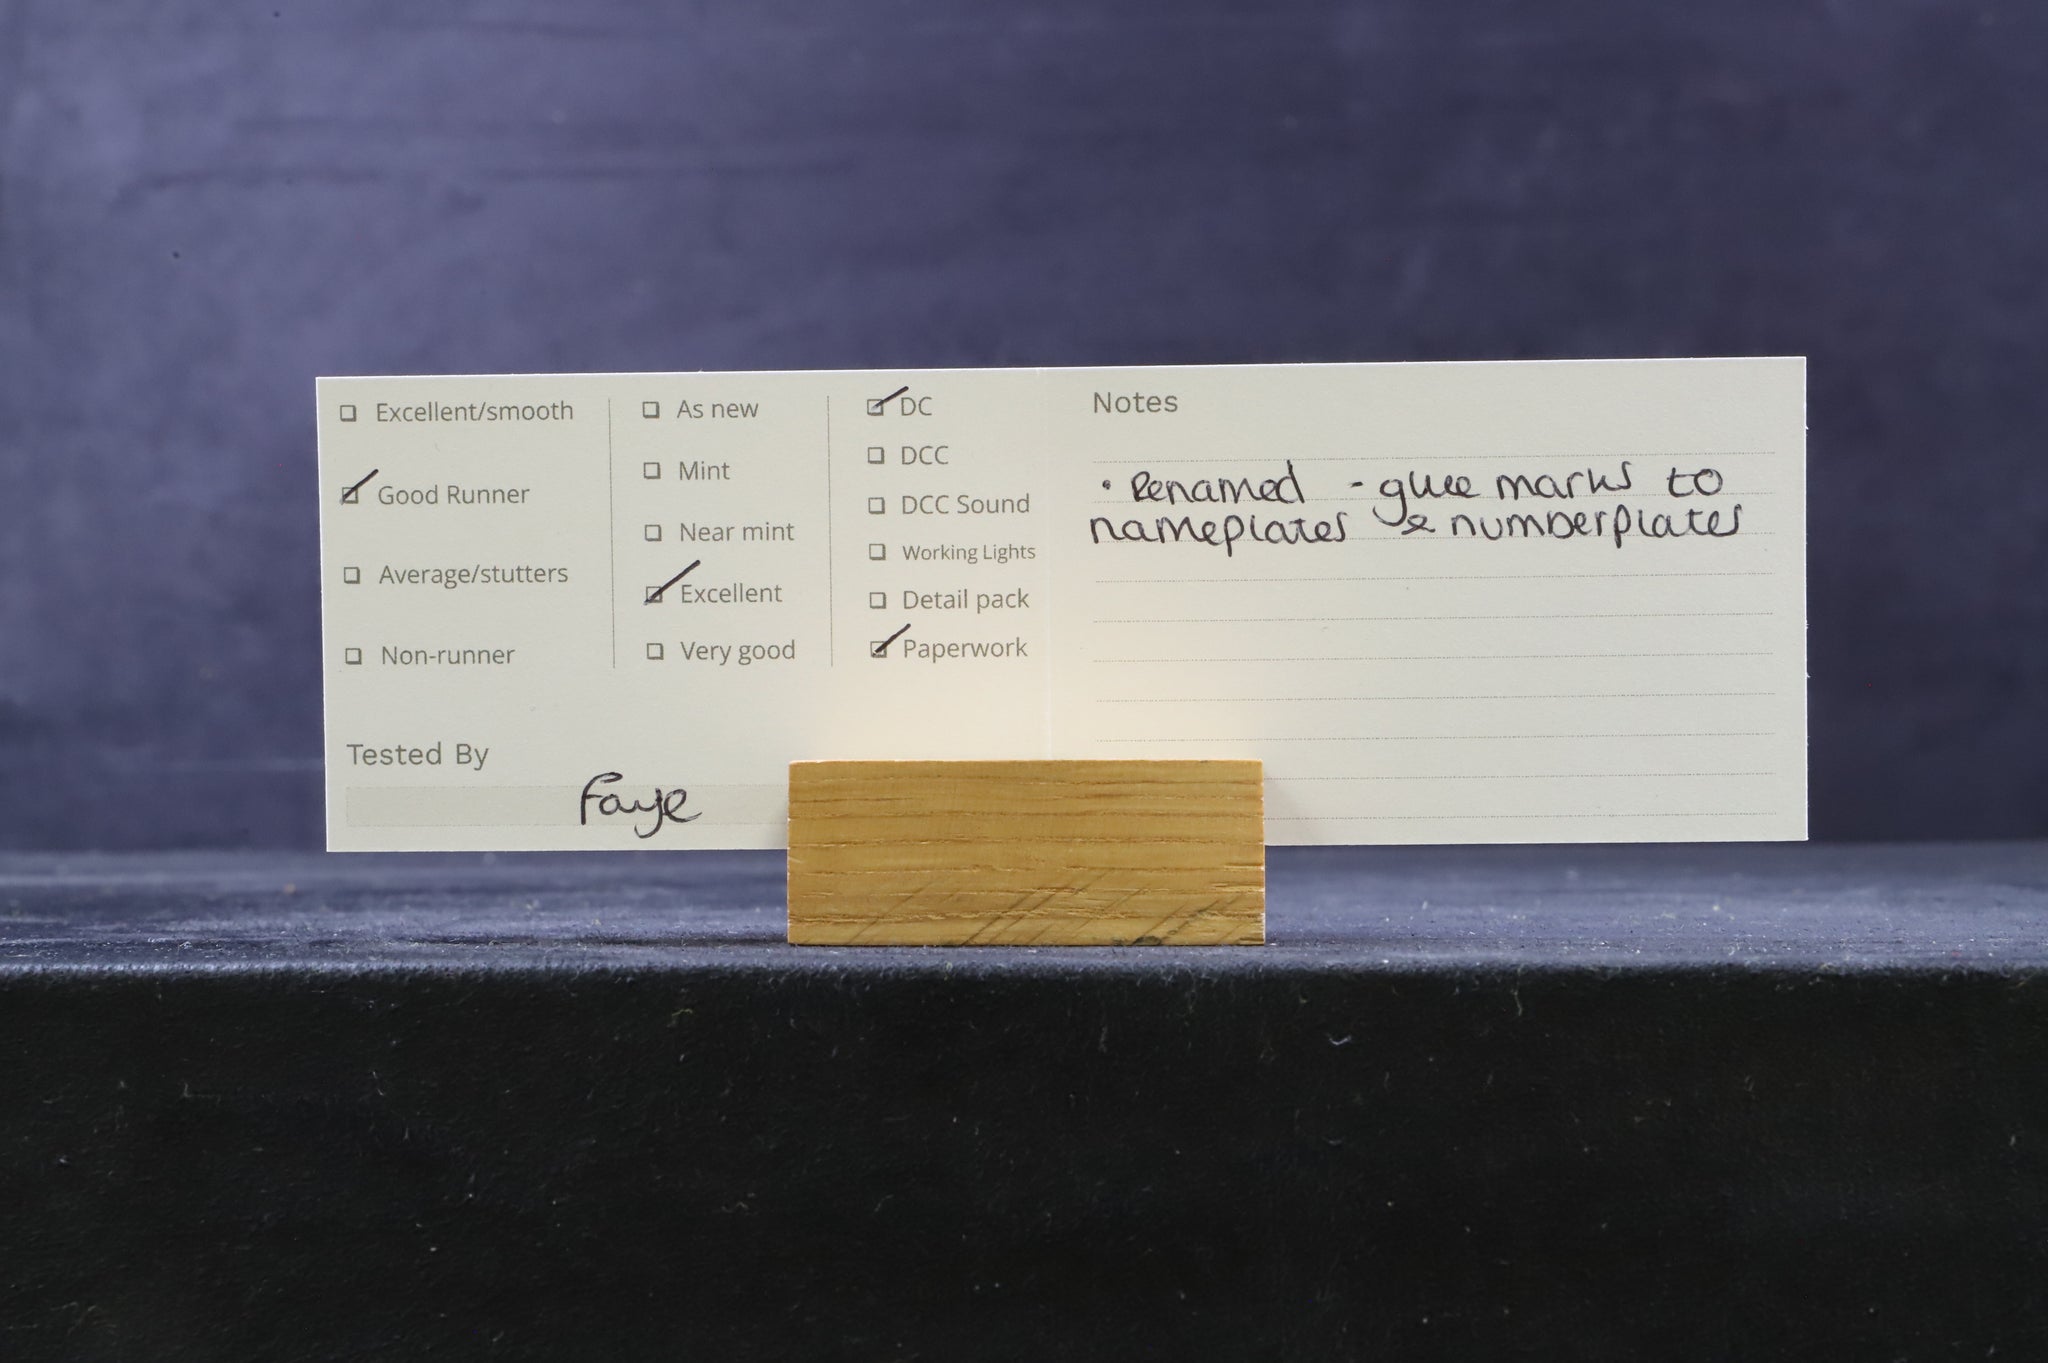 Excellent/smooth
Good Runner
Average/stutters
Non-runner
As new
Mint
Near mint
Excellent
Very good
DC
DCC
DCC Sound
Working Lights
Detail pack
Paperwork
Tested By
Faye
Notes
• Renamed - glue marks to
nameplates & numberplates